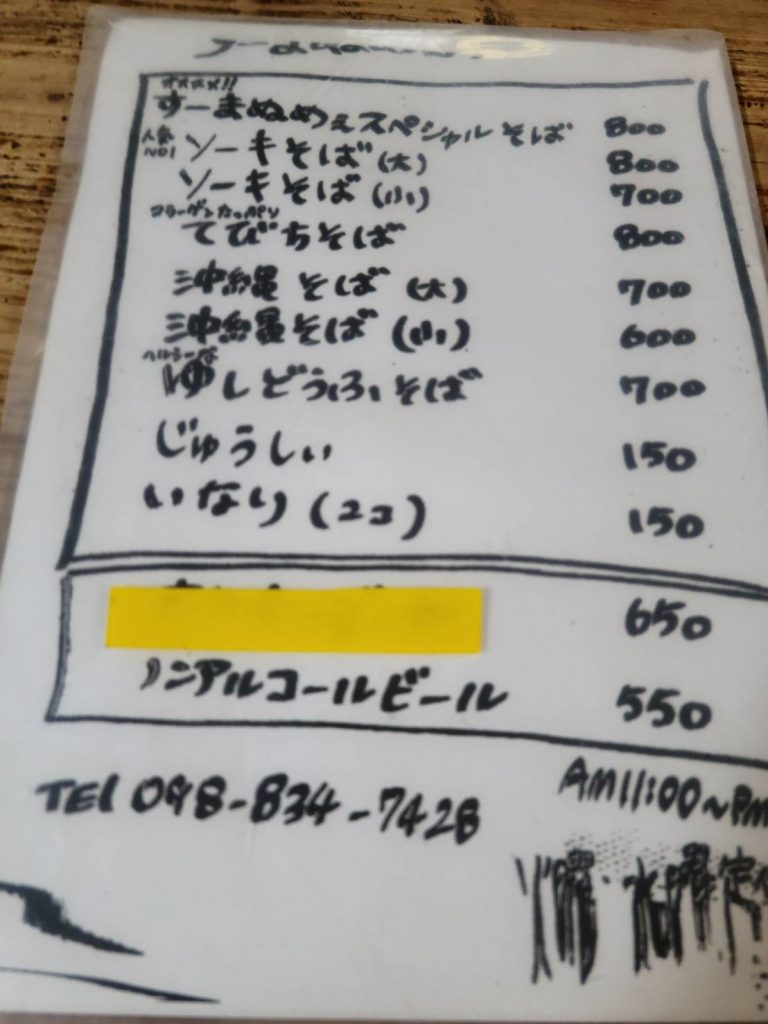 オススメ!!
すーまぬめぇスペシャルそば 800
人気NO1 ソーキそば(大) 800
ソーキそば(小) 700
コラーゲンたっぷり
てびちそば 800
沖縄そば(大) 700
沖縄そば(小) 600
ヘルシーな
ゆしどうふそば 700
じゅうしぃ 150
いなり(2コ) 150
650
ノンアルコールビール 550
TEl 098-834-7428
AM11:00~PM
火曜・水曜定